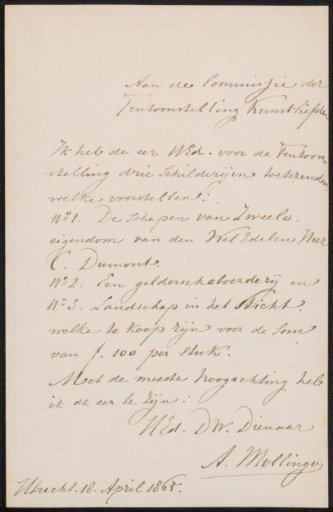 Aan de Commissie der
Tentoonstelling Kunstliefde.
Ik heb de eer UEd. voor de Tentoon-
stelling drie Schilderijen toetezenden,
welke voorstellen:
No 1. De Schapen van Zweelo.
eigendom van den Wel Edelen Heer
C. Dumont.
No 2. Een geldersche boerderij en
No 3. Landschap in het Sticht.
welke te koop zijn voor de Som
van f. 100 per Stuk.
Met de meeste hoogachting heb
ik de eer te zijn:
UEd. DW. Dienaar
A. Mollinger
Utrecht. 18. April 1865.